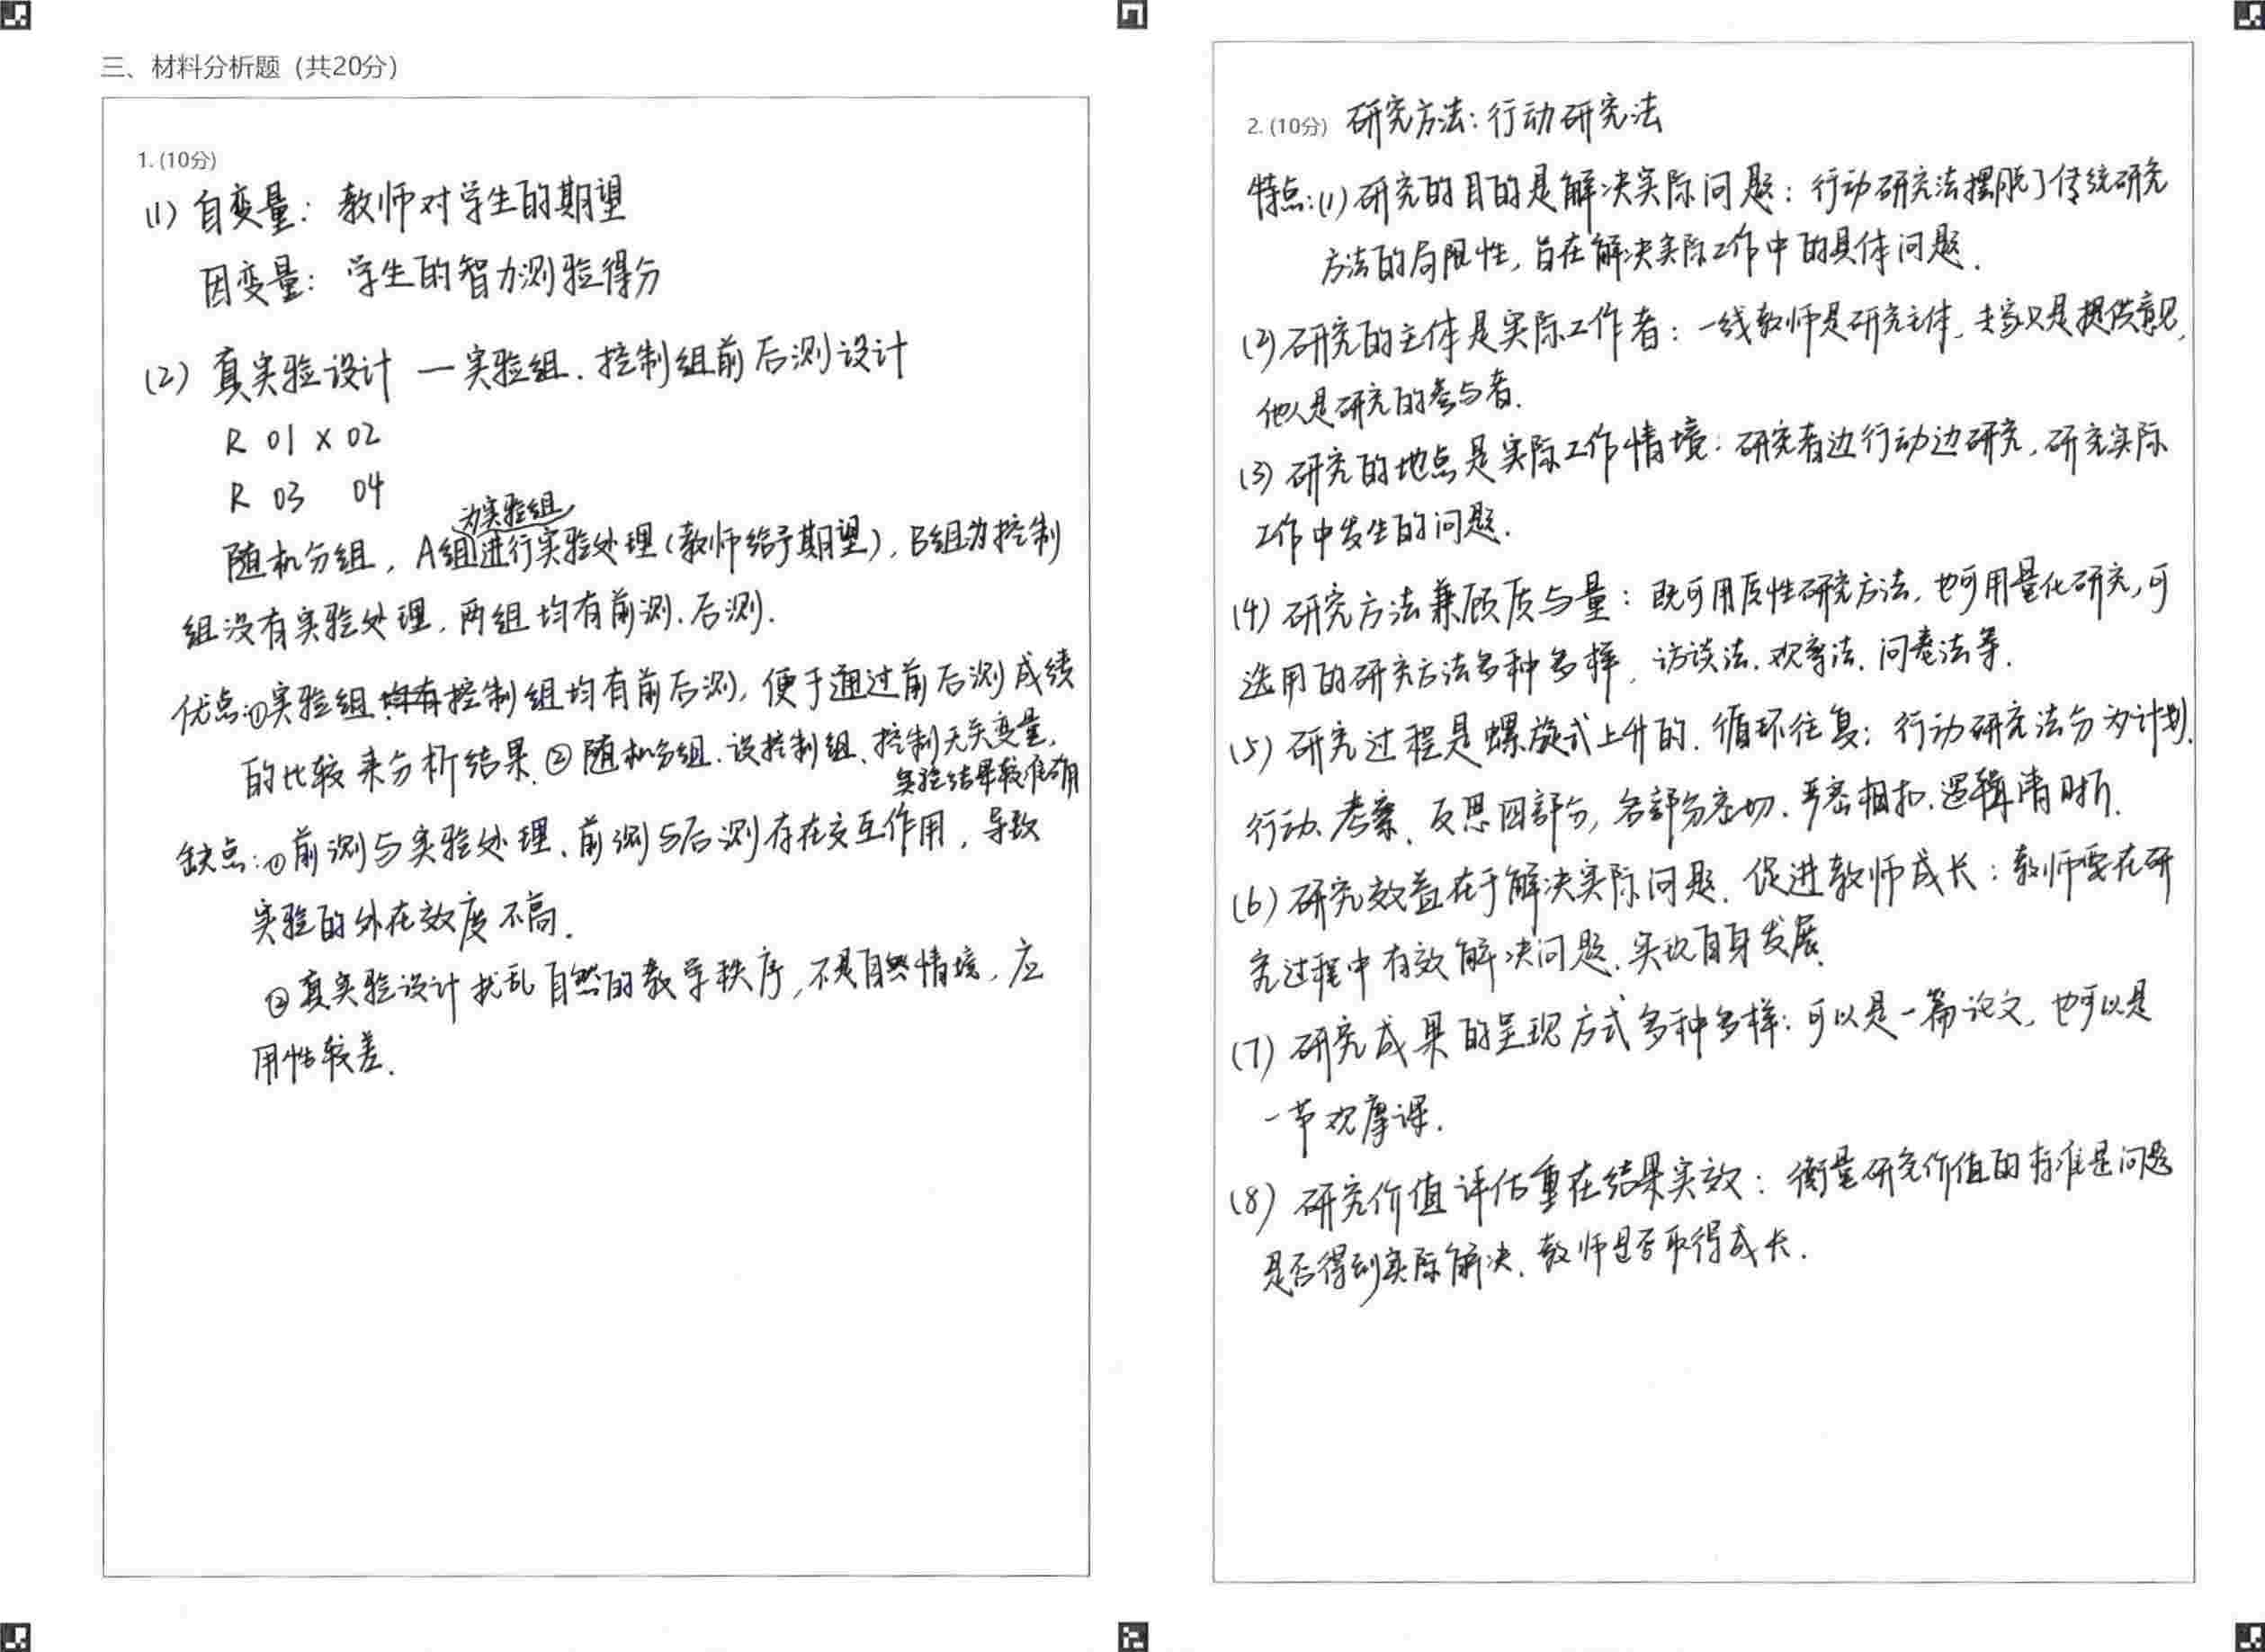 三、材料分析题（共20分）
1. (10分)
(1) 自变量：教师对学生的期望
因变量：学生的智力测验得分
(2) 真实验设计 — 实验组、控制组前后测设计
R 01 X 02
R 03 04
随机分组，A组为实验组进行实验处理（教师给予期望），B组为控制
组没有实验处理，两组均有前测、后测.
优点：①实验组、控制组均有前后测，便于通过前后测成绩
的比较来分析结果.②随机分组、设控制组、控制无关变量，
实验结果较准确
缺点：①前测与实验处理、前测与后测存在交互作用，导致
实验的外在效度不高.
②真实验设计扰乱自然的教学秩序，不是自然情境，应
用性较差.
2. (10分) 研究方法：行动研究法
特点：(1)研究的目的是解决实际问题：行动研究法摆脱了传统研究
方法的局限性，旨在解决实际工作中的具体问题.
(2)研究的主体是实际工作者：一线教师是研究主体，专家只是提供意见，
他人是研究的参与者.
(3)研究的地点是实际工作情境：研究者边行动边研究，研究实际
工作中发生的问题.
(4)研究方法兼顾质与量：既可用质性研究方法，也可用量化研究，可
选用的研究方法多种多样，访谈法、观察法、问卷法等.
(5)研究过程是螺旋式上升的、循环往复：行动研究法分为计划、
行动、考察、反思四部分，各部分密切、严密相扣、逻辑清晰.
(6)研究效益在于解决实际问题、促进教师成长：教师要在研
究过程中有效解决问题、实现自身发展.
(7)研究成果的呈现方式多种多样：可以是一篇论文，也可以是
一节观摩课.
(8)研究价值评估重在结果实效：衡量研究价值的标准是问题
是否得到实际解决、教师是否取得成长.